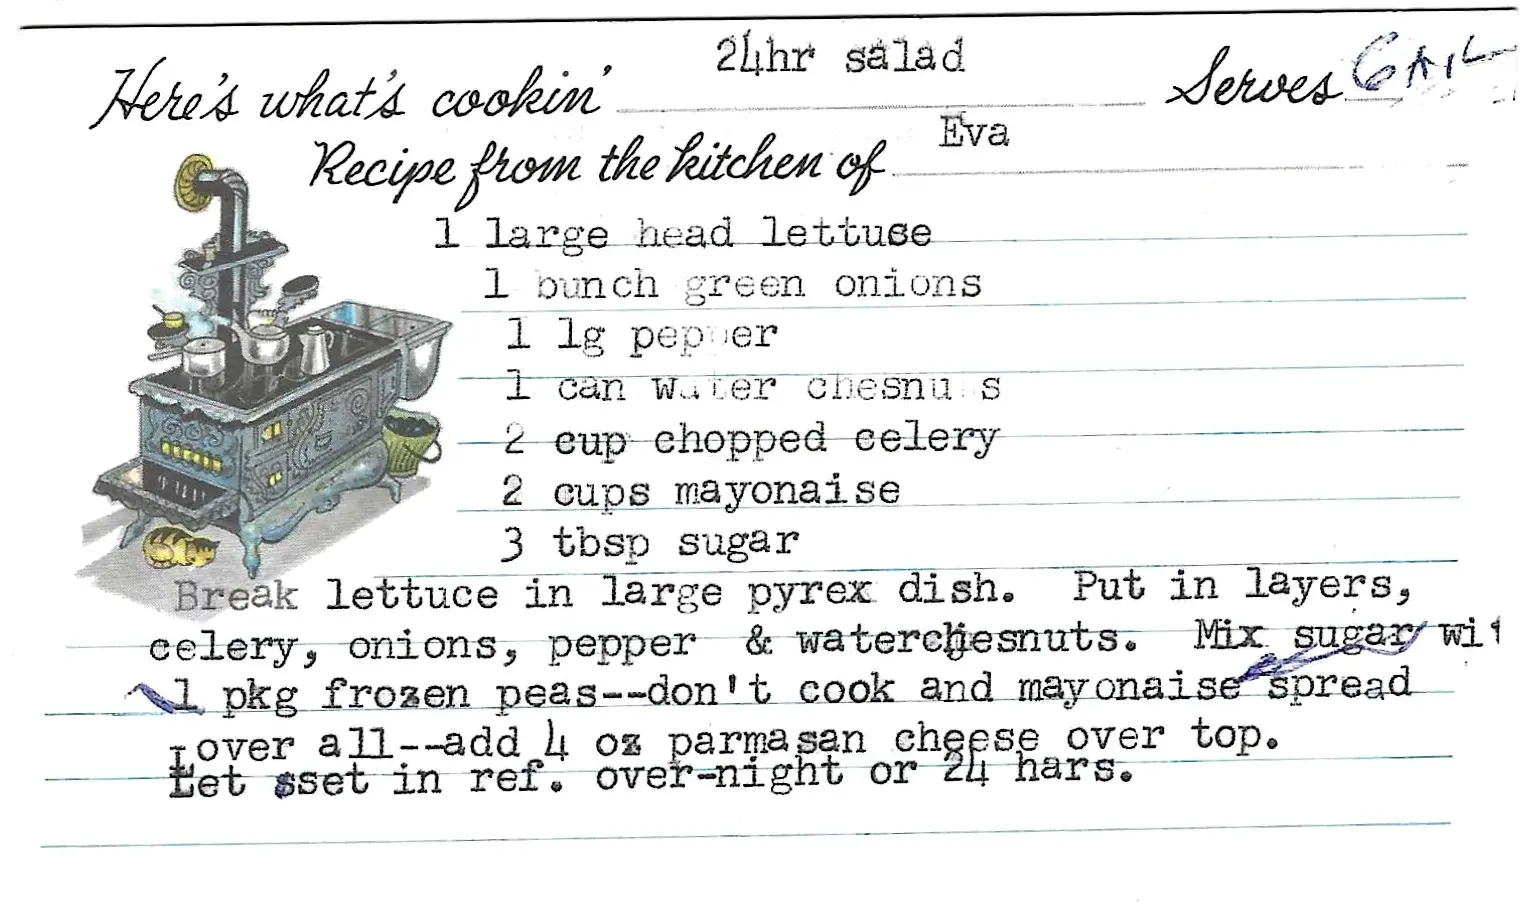 24hr salad
Here's what's cookin' Serves GAIL
Eva
Recipe from the kitchen of
1 large head lettuse
1 bunch green onions
1 lg pepper
1 can water chesnuts
2 cup chopped celery
2 cups mayonaise
3 tbsp sugar
Break lettuce in large pyrex dish. Put in layers,
celery, onions, pepper & waterchesnuts. Mix sugar wit
1 pkg frozen peas--don't cook and mayonaise spread
over all--add 4 oz parmasan cheese over top.
Let sset in ref. over-night or 24 hars.